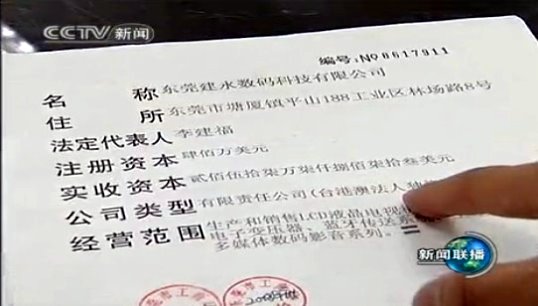 CCTV 新闻
编号:NO 8617911
名称 东莞建永数码科技有限公司
住所 东莞市塘厦镇平山188工业区林场路8号
法定代表人 李建福
注册资本 肆佰万美元
实收资本 贰佰伍拾柒万柒仟捌佰柒拾叁美元
公司类型 有限责任公司(台港澳法人独
经营范围 生产和销售LCD液晶电视
电子变压器、蓝牙传送系
多媒体数码影音系列。
新闻联播